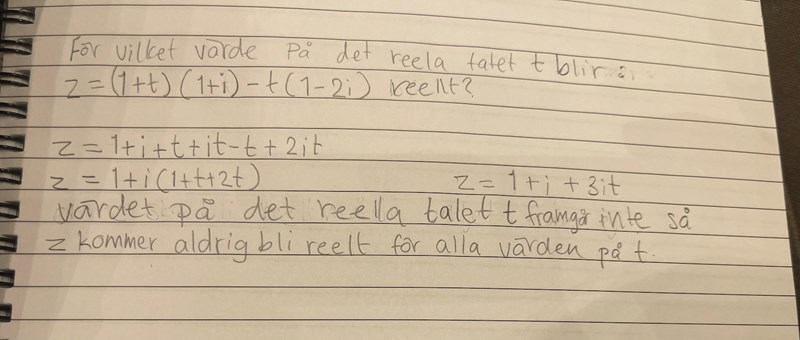 För vilket värde på det reela talet t blir:
z = (1+t)(1+i)-t(1-2i) reellt?
z = 1+i+t+it-t+2it
z = 1+i(1+t+2t) z = 1+i+3it
värdet på det reella talet t framgår inte så
z kommer aldrig bli reelt för alla värden på t.